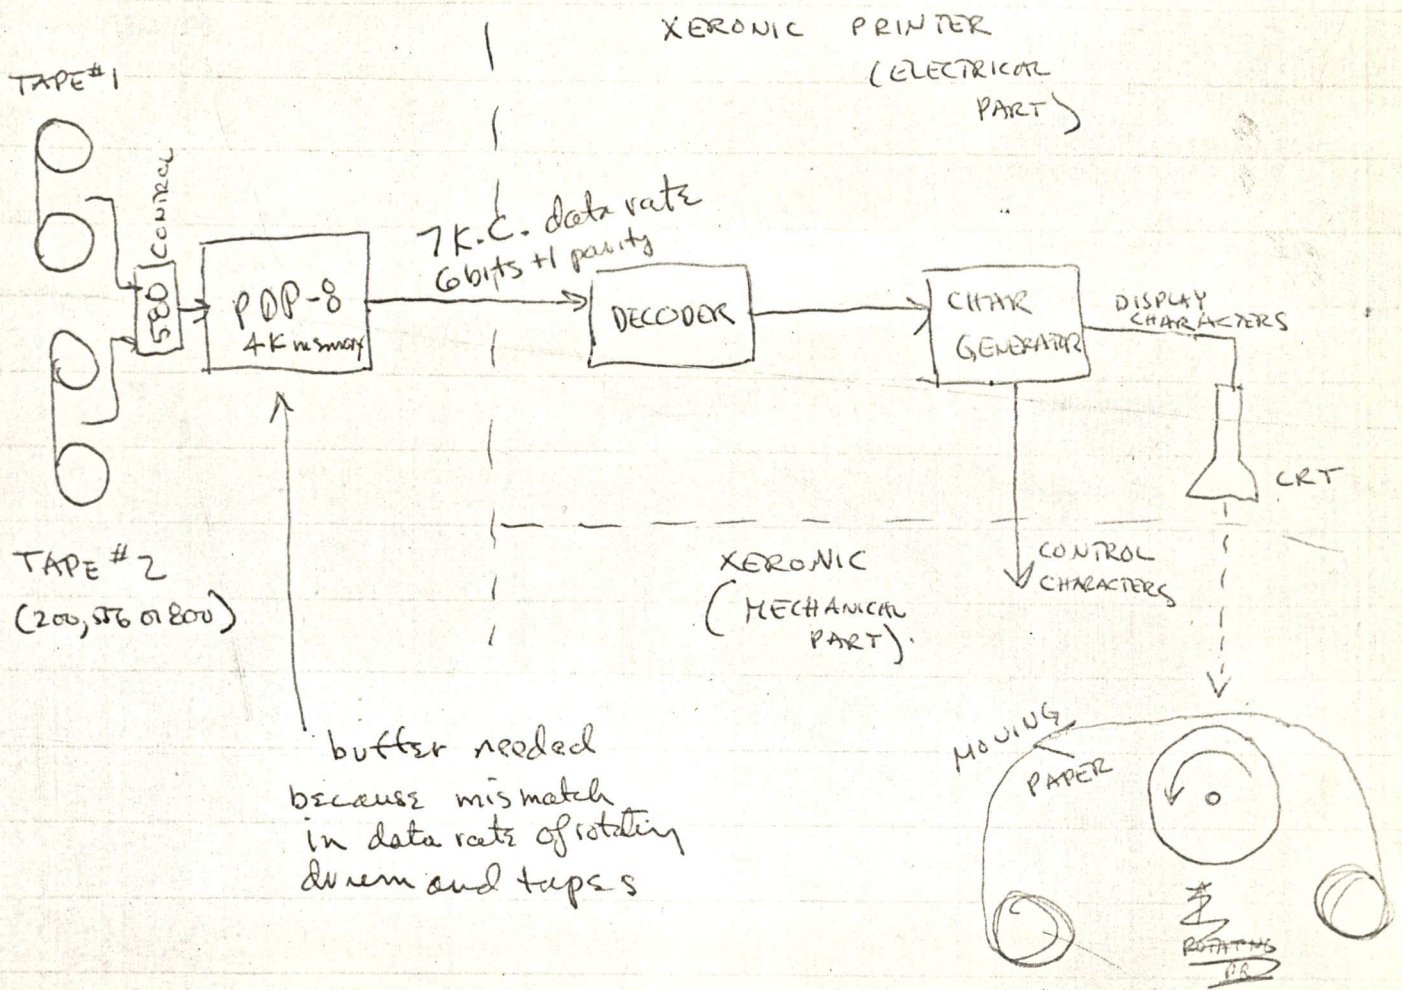 XERONIC PRINTER
(ELECTRICAL
PART)
TAPE #1
CONTROL
580
PDP-8
4K memory
7 K.C. data rate
6 bits +1 parity
DECODER
CHAR
GENERATOR
DISPLAY
CHARACTERS
CRT
TAPE #2
(200, 556 or 800)
XERONIC
(MECHANICAL
PART).
CONTROL
CHARACTERS
buffer needed
because mismatch
in data rate of rotating
drum and tapes
MOVING
PAPER
ROTATING
DR